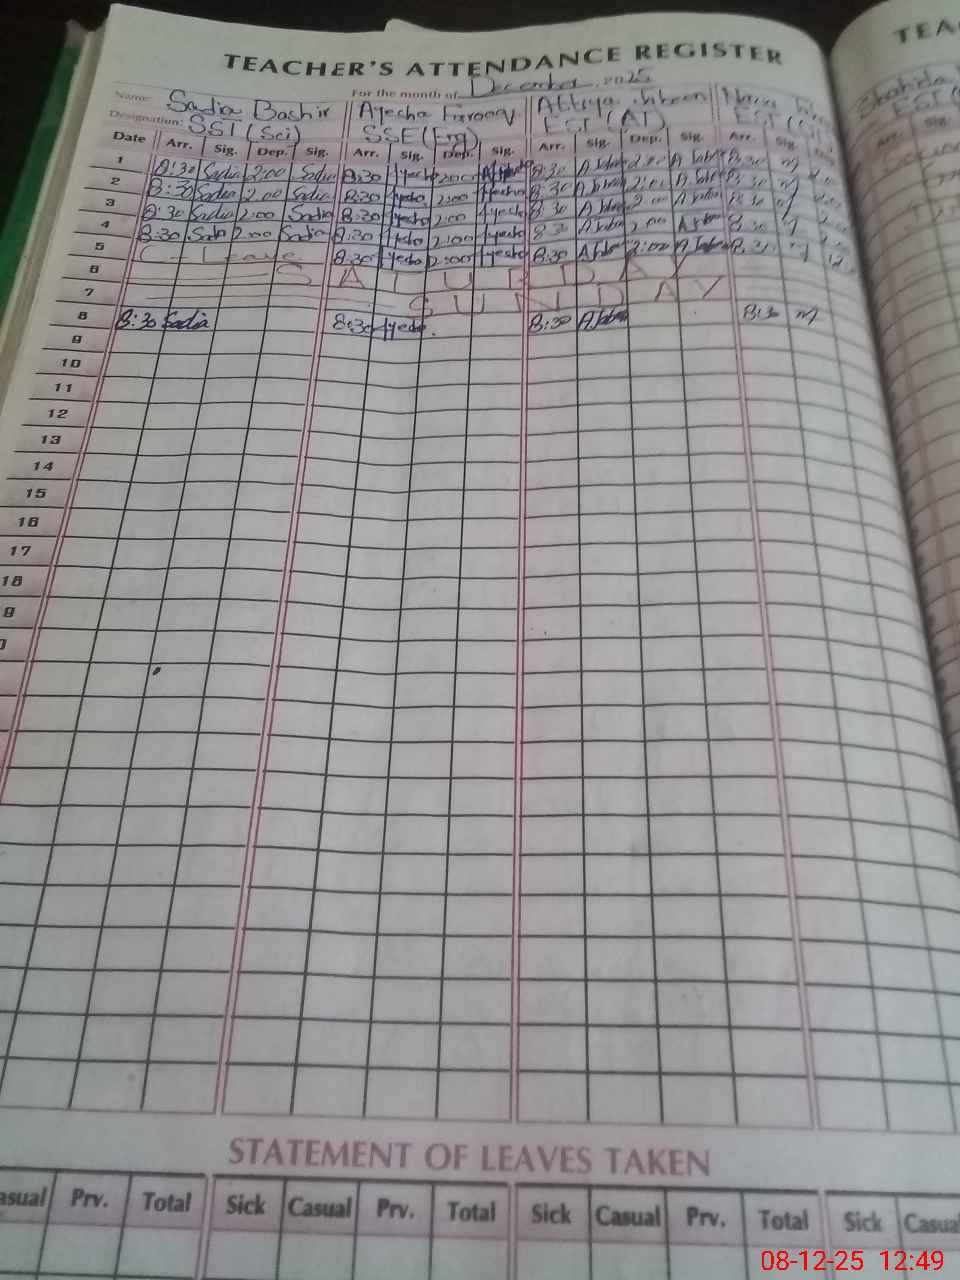 TEACHER'S ATTENDANCE REGISTER
For the month of December, 2025
Name: Sadia Bashir Ayesha Farooq Attiya Jabeen
Designation: SST (Sci) SSE (Eng) EST (AT) EST
Date Arr. Sig. Dep. Sig. Arr. Sig. Dep. Sig. Arr. Sig. Dep. Sig. Arr. Sig.
1 8:30 Sadia 2:00 Sadia 8:30 Ayesha 2:00 Ayesha 8:30 A Jabeen 2:00 A Jabeen 8:30
2 8:30 Sadia 2:00 Sadia 8:30 Ayesha 2:00 Ayesha 8:30 A Jabeen 2:00 A Jabeen 8:30
3 8:30 Sadia 2:00 Sadia 8:30 Ayesha 2:00 Ayesha 8:30 A Jabeen 2:00 A Jabeen 8:30
4 8:30 Sadia 2:00 Sadia 8:30 Ayesha 2:00 Ayesha 8:30 A Jabeen 2:00 A Jabeen 8:30
5 C - Leave 8:30 Ayesha 2:00 Ayesha 8:30 A Jabeen 2:00 A Jabeen 8:30
6 SATURDAY
7 SUNDAY
8 8:30 Sadia 8:30 Ayesha 8:30 A Jabeen 8:30
9
10
11
12
13
14
15
16
17
18
9
STATEMENT OF LEAVES TAKEN
asual Prv. Total Sick Casual Prv. Total Sick Casual Prv. Total Sick Casua
TEA
Shahida
EST
Arr. Sig.
08-12-25 12:49